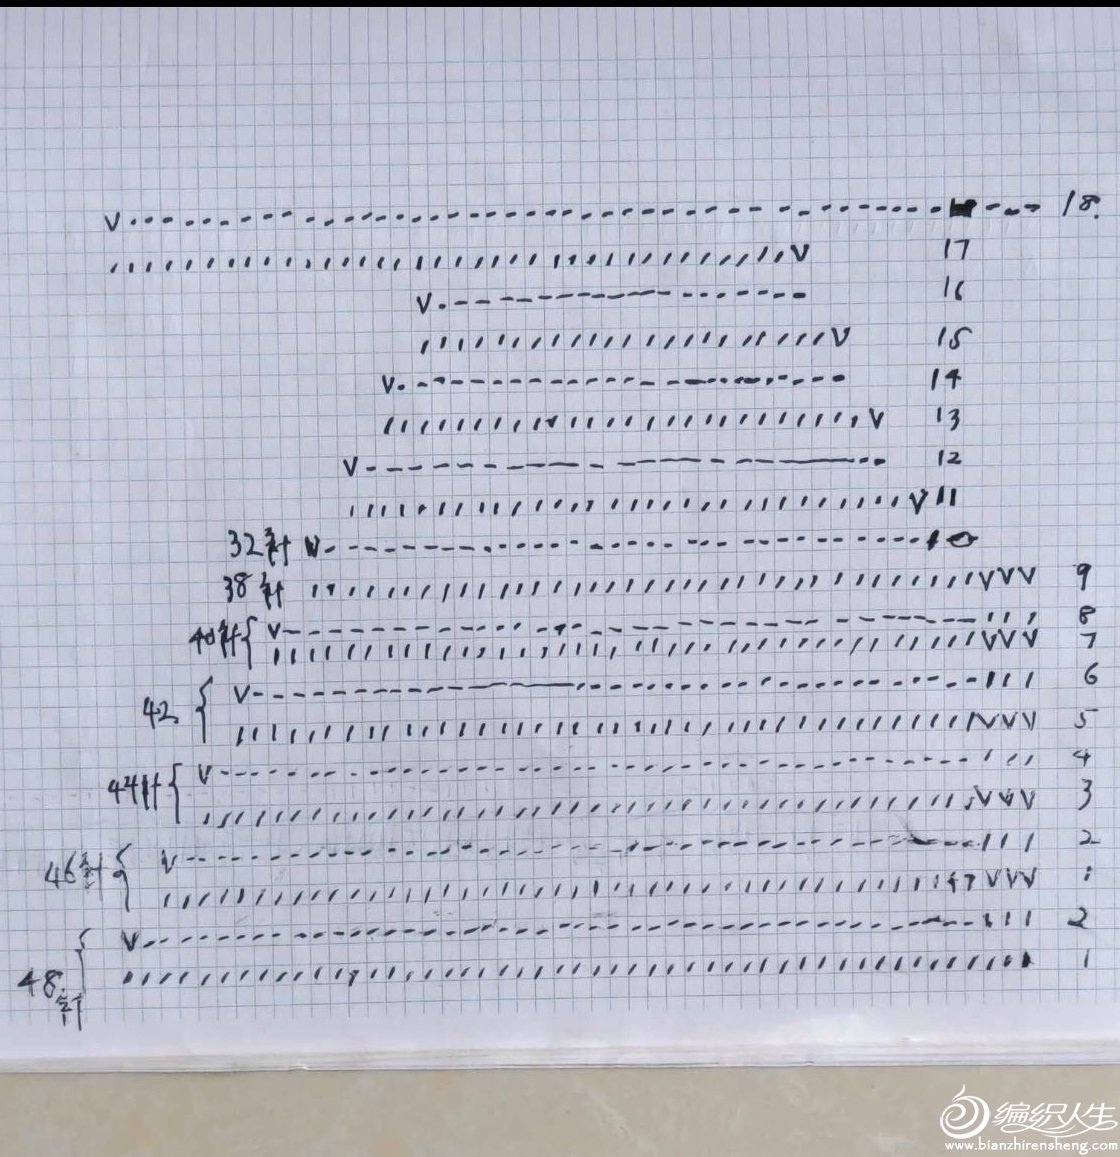 18.
17
16
15
14
13
12
11
32针 10
38针 9
40针 8
7
42 6
5
44针 4
3
46针 2
1
48针 2
1
编织人生
www.bianzhirensheng.com